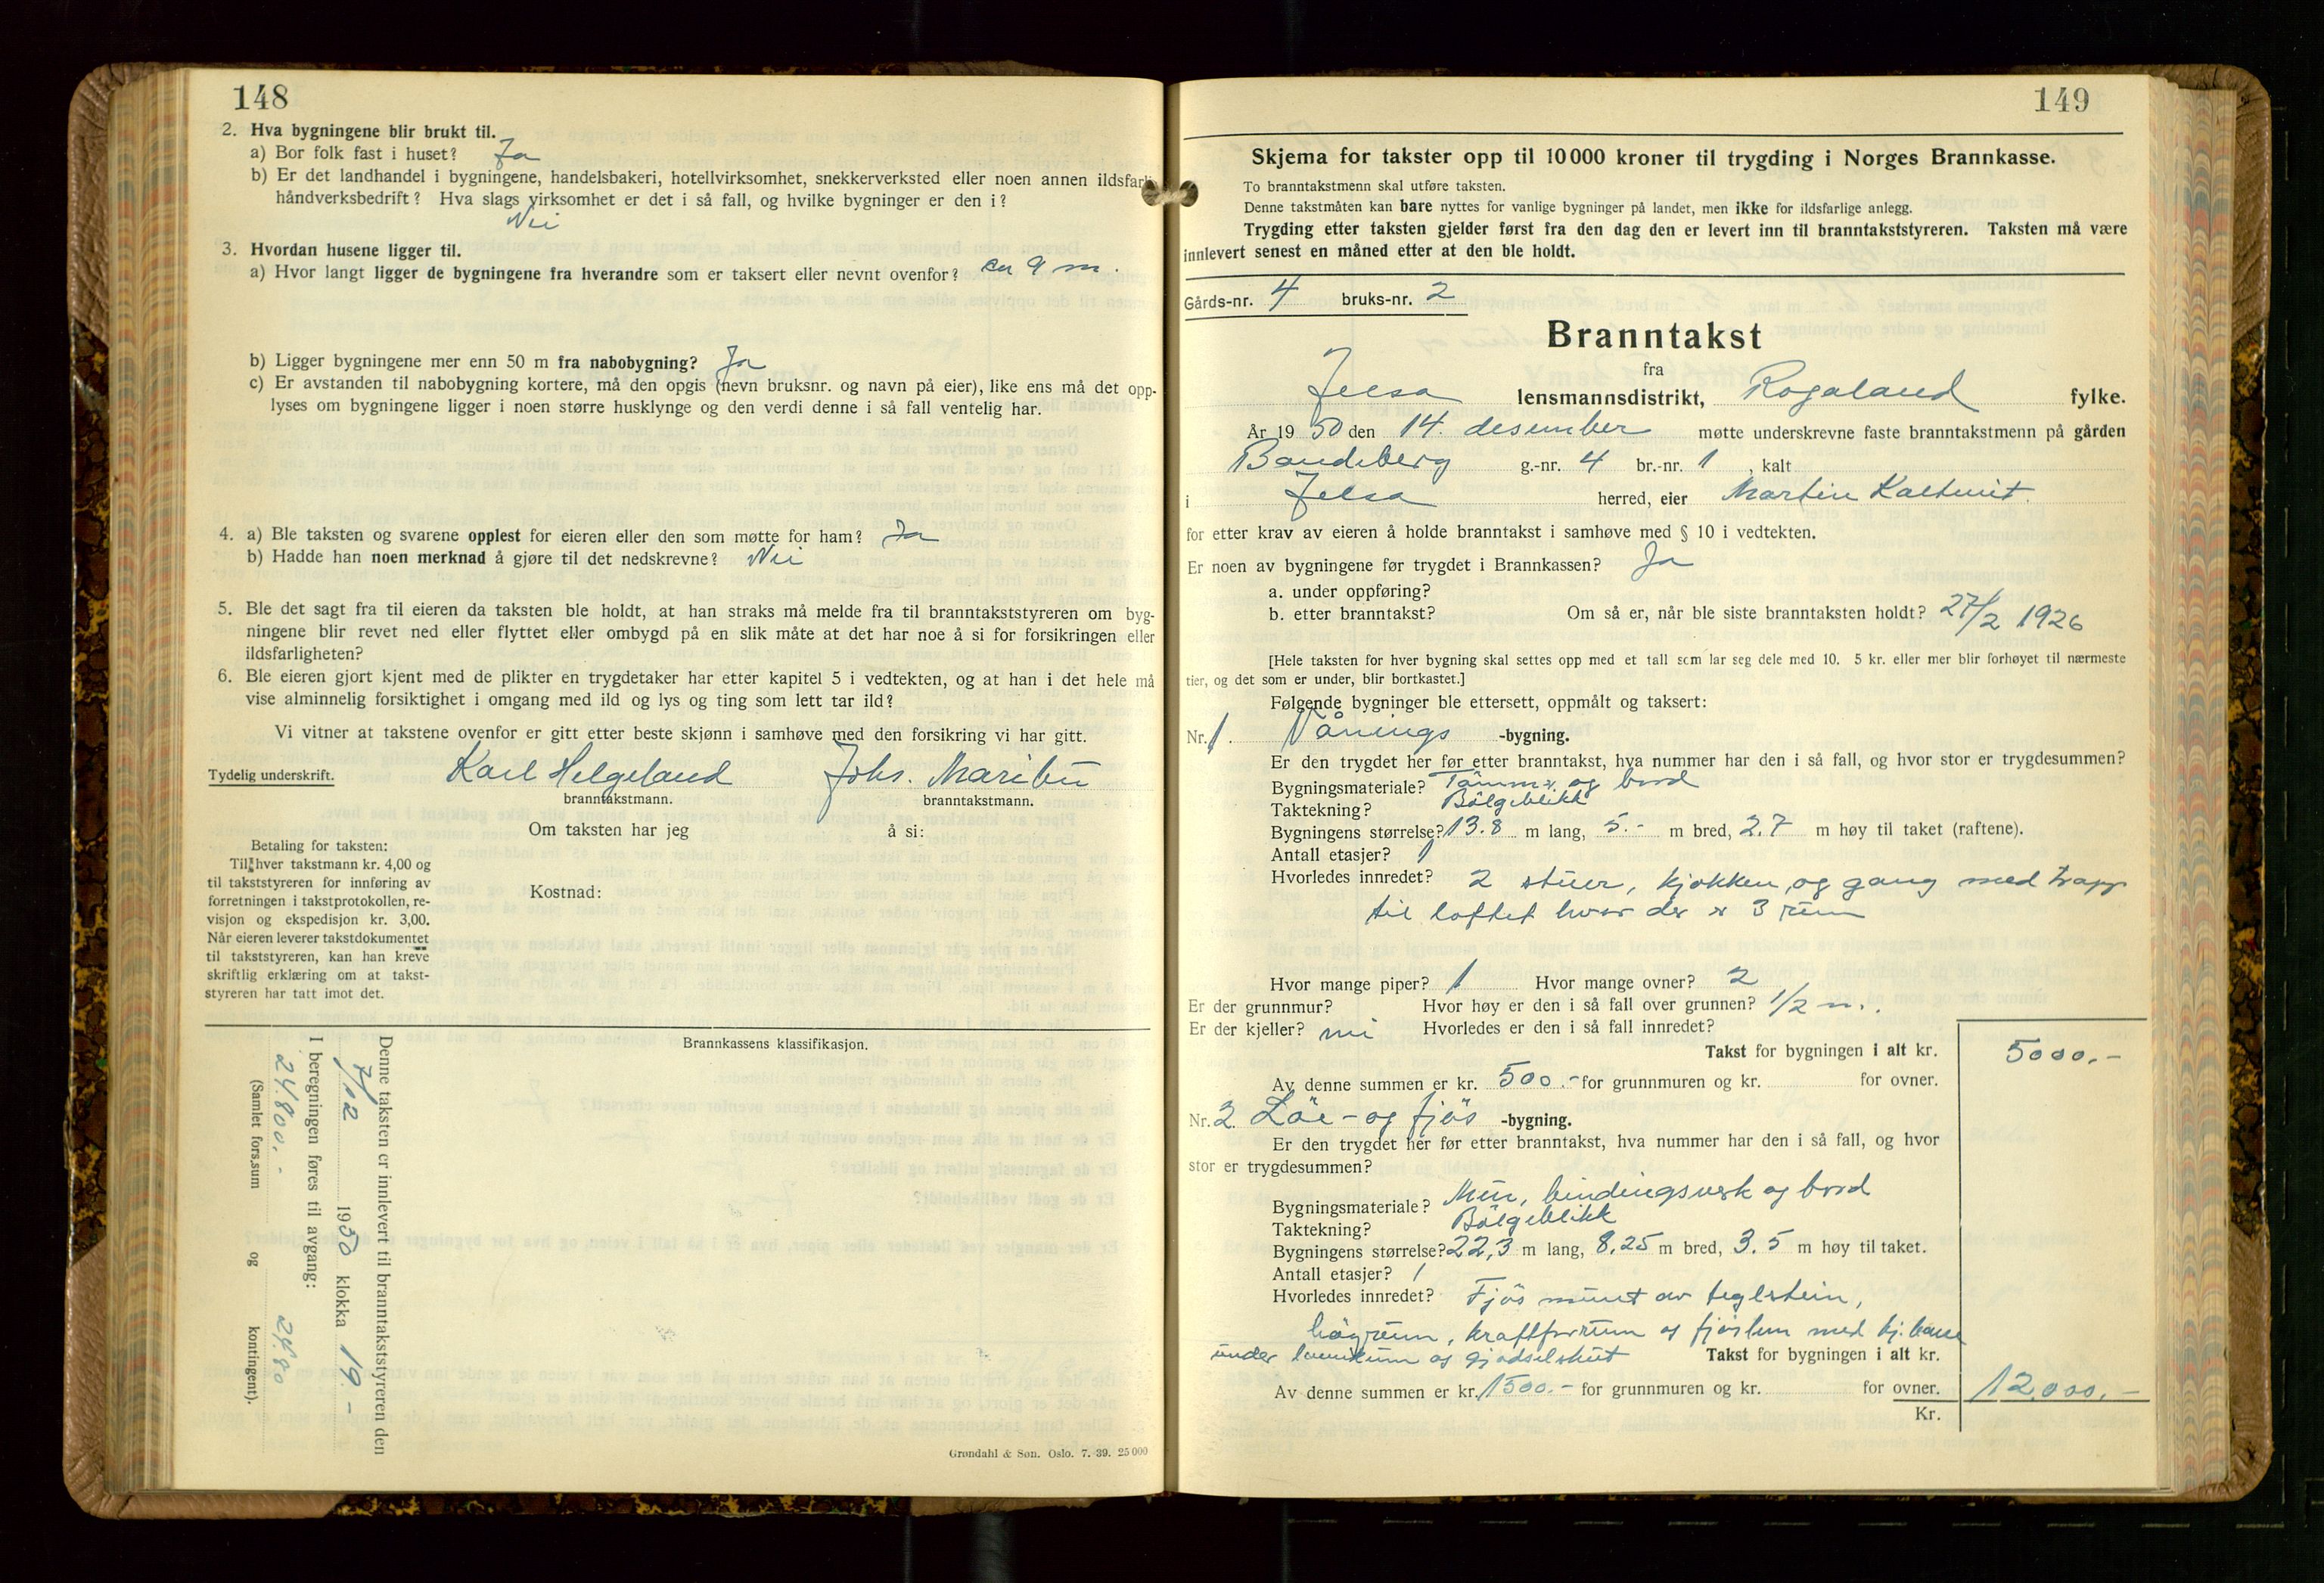 148
2. Hva bygningene blir brukt til.
a) Bor folk fast i huset? Ja
b) Er det landhandel i bygningene, handelsbakeri, hotellvirksomhet, snekkerverksted eller noen annen ildsfarli
håndverksbedrift? Hva slags virksomhet er det i så fall, og hvilke bygninger er den i?
Nei
3. Hvordan husene ligger til.
a) Hvor langt ligger de bygningene fra hverandre som er taksert eller nevnt ovenfor? ca 9 m.
b) Ligger bygningene mer enn 50 m fra nabobygning? Ja
c) Er avstanden til nabobygning kortere, må den opgis (nevn bruksnr. og navn på eier), like ens må det opp-
lyses om bygningene ligger i noen større husklynge og den verdi denne i så fall ventelig har.
4. a) Ble taksten og svarene opplest for eieren eller den som møtte for ham? Ja
b) Hadde han noen merknad å gjøre til det nedskrevne? Nei
5. Ble det sagt fra til eieren da taksten ble holdt, at han straks må melde fra til branntakststyreren om byg-
ningene blir revet ned eller flyttet eller ombygd på en slik måte at det har noe å si for forsikringen eller
ildsfarligheten?
6. Ble eieren gjort kjent med de plikter en trygdetaker har etter kapitel 5 i vedtekten, og at han i det hele må
vise alminnelig forsiktighet i omgang med ild og lys og ting som lett tar ild?
Vi vitner at takstene ovenfor er gitt etter beste skjønn i samhøve med den forsikring vi har gitt.
Tydelig underskrift. Karl Helgeland Johs. Maribu
branntakstmann. branntakstmann.
Om taksten har jeg å si:
Betaling for taksten:
Til hver takstmann kr. 4,00 og
til takststyreren for innføring av
forretningen i takstprotokollen, re-
visjon og ekspedisjon kr. 3,00.
Når eieren leverer takstdokumentet
til takststyreren, kan han kreve
skriftlig erklæring om at takst-
styreren har tatt imot det.
Kostnad:
Brannkassens klassifikasjon.
Denne taksten er innlevert til branntakststyreren den
7/12 1950 klokka 19.-
I beregningen føres til avgang:
24.800.- 24.80
(Samlet fors.sum og kontingent).
Grøndahl & Søn. Oslo. 7. 39. 25 000
149
Skjema for takster opp til 10 000 kroner til trygding i Norges Brannkasse.
To branntakstmenn skal utføre taksten.
Denne takstmåten kan bare nyttes for vanlige bygninger på landet, men ikke for ildsfarlige anlegg.
Trygding etter taksten gjelder først fra den dag den er levert inn til branntakststyreren. Taksten må være
innlevert senest en måned etter at den ble holdt.
Gårds-nr. 4 bruks-nr. 2
Branntakst
fra
Jelsa lensmannsdistrikt, Rogaland fylke.
År 1950 den 14. desember møtte underskrevne faste branntakstmenn på gården
Bandeberg g.-nr. 4 br.-nr. 1, kalt
i Jelsa herred, eier Martin Kaltveit.
for etter krav av eieren å holde branntakst i samhøve med § 10 i vedtekten.
Er noen av bygningene før trygdet i Brannkassen? Ja
a. under oppføring?
b. etter branntakst? Om så er, når ble siste branntaksten holdt? 27/2 1926
[Hele taksten for hver bygning skal settes opp med et tall som lar seg dele med 10. 5 kr. eller mer blir forhøyet til nærmeste
tier, og det som er under, blir bortkastet.]
Følgende bygninger ble ettersett, oppmålt og taksert:
Nr. 1. Vånings -bygning.
Er den trygdet her før etter branntakst, hva nummer har den i så fall, og hvor stor er trygdesummen?
Bygningsmateriale? Tømmer og bord
Taktekning? Bölgeblikk
Bygningens størrelse? 13.8 m lang, 5.- m bred, 2.7 m høy til taket (raftene).
Antall etasjer? 1
Hvorledes innredet? 2 stuer, kjøkken og gang med trapp
til loftet hvor der er 3 rum
Hvor mange piper? 1 Hvor mange ovner? 2
Er der grunnmur? Hvor høy er den i så fall over grunnen? 1/2 m.
Er der kjeller? nei Hvorledes er den i så fall innredet?
Takst for bygningen i alt kr. 5000.-
Av denne summen er kr. 500.- for grunnmuren og kr. for ovner.
Nr. 2. Löe- og fjös -bygning.
Er den trygdet her før etter branntakst, hva nummer har den i så fall, og hvor
stor er trygdesummen?
Bygningsmateriale? Mur, bindingsverk og bord
Taktekning? Bölgeblikk
Bygningens størrelse? 22,3 m lang, 8.25 m bred, 3.5 m høy til taket.
Antall etasjer? 1
Hvorledes innredet? Fjös muret av teglstein,
höyrum, kraftforrum og fjöslem med kj.
under og gjødselshut Takst for bygningen i alt kr.
Av denne summen er kr. 1500.- for grunnmuren og kr. for ovner. 12.000.-
Kr.